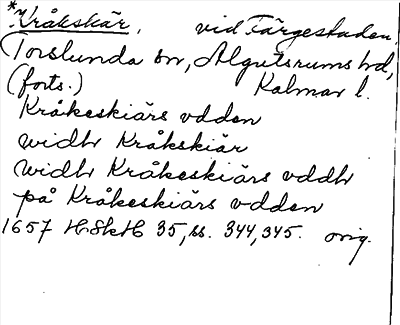 *Kråkskär, vid Färgestaden,
Torslunda sn, Algutsrums hd,
(forts.) Kalmar l.
Kråkeskiärs vdden
widh Kråkskiär
widh Kråkeskiärs vddh
på Kråkeskiärs vdden
1657 HSkH 35, ss. 344, 345. orig.